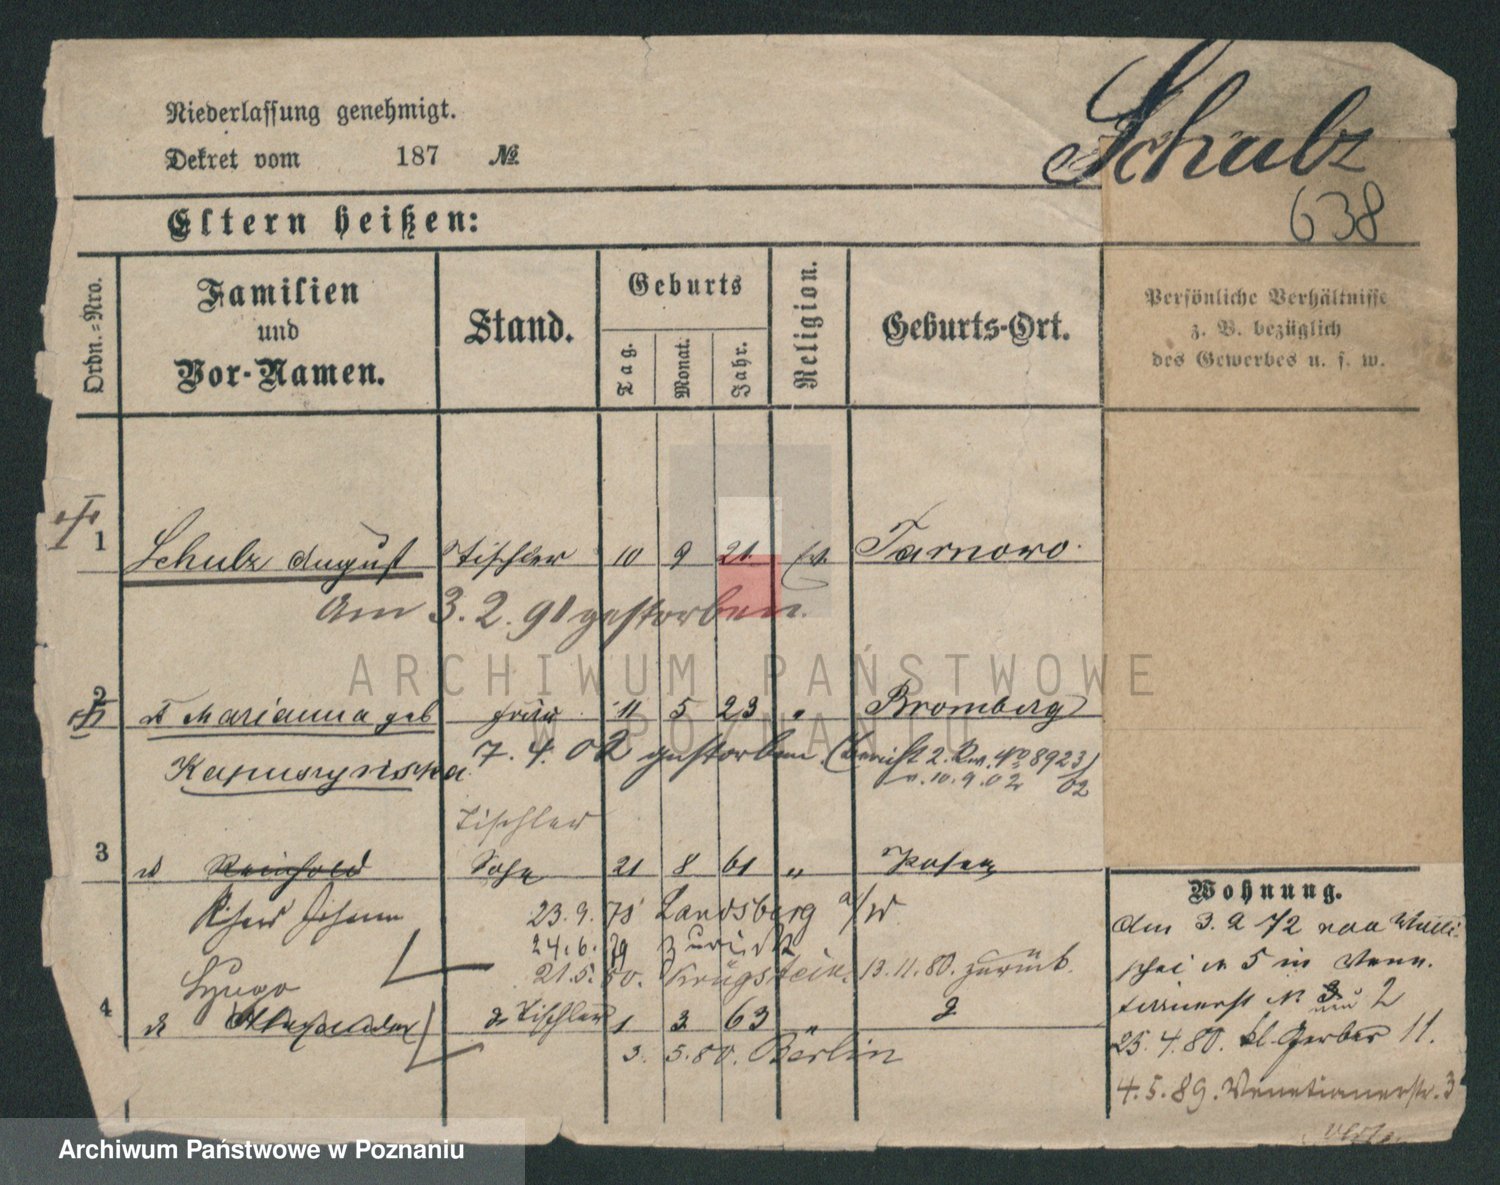 Niederlassung genehmigt.
Dekret vom 187 №
Schulz
638
Eltern heißen:
Ordn.-Nro.
Familien
und
Vor-Namen.
Stand.
Geburts
Tag.
Monat.
Jahr.
Religion.
Geburts-Ort.
Persönliche Verhältnisse
z. B. bezüglich
des Gewerbes u. s. w.
1 Schulz August Tischler 10 9 21 ev. Tarnowo.
Am 3. 2. 91 gestorben.
ARCHIWUM PAŃSTWOWE
W POZNANIU
2 Marianna geb Frau 11 5 23 " Bromberg
Kapuszyńska 7. 4. 02 gestorben. (Bericht 2. Rev. No 8923/02
v. 10. 9. 02
Tischler
3 Reinhold Sohn 21 8 61 " Posen
Johann 23. 9. 78 Landsberg a/W
24. 6. 79 zurück
21. 5. 80. 13. 11. 80. zurück.
Hugo
4 Alexander Tischler 1 3 63 "
3. 5. 80. Berlin
Wohnung.
Am 3. 2 72 von
5 in
№ 2
25. 4. 80. kl. Gerber 11.
4. 5. 89. Venetianerstr. 3
Archiwum Państwowe w Poznaniu